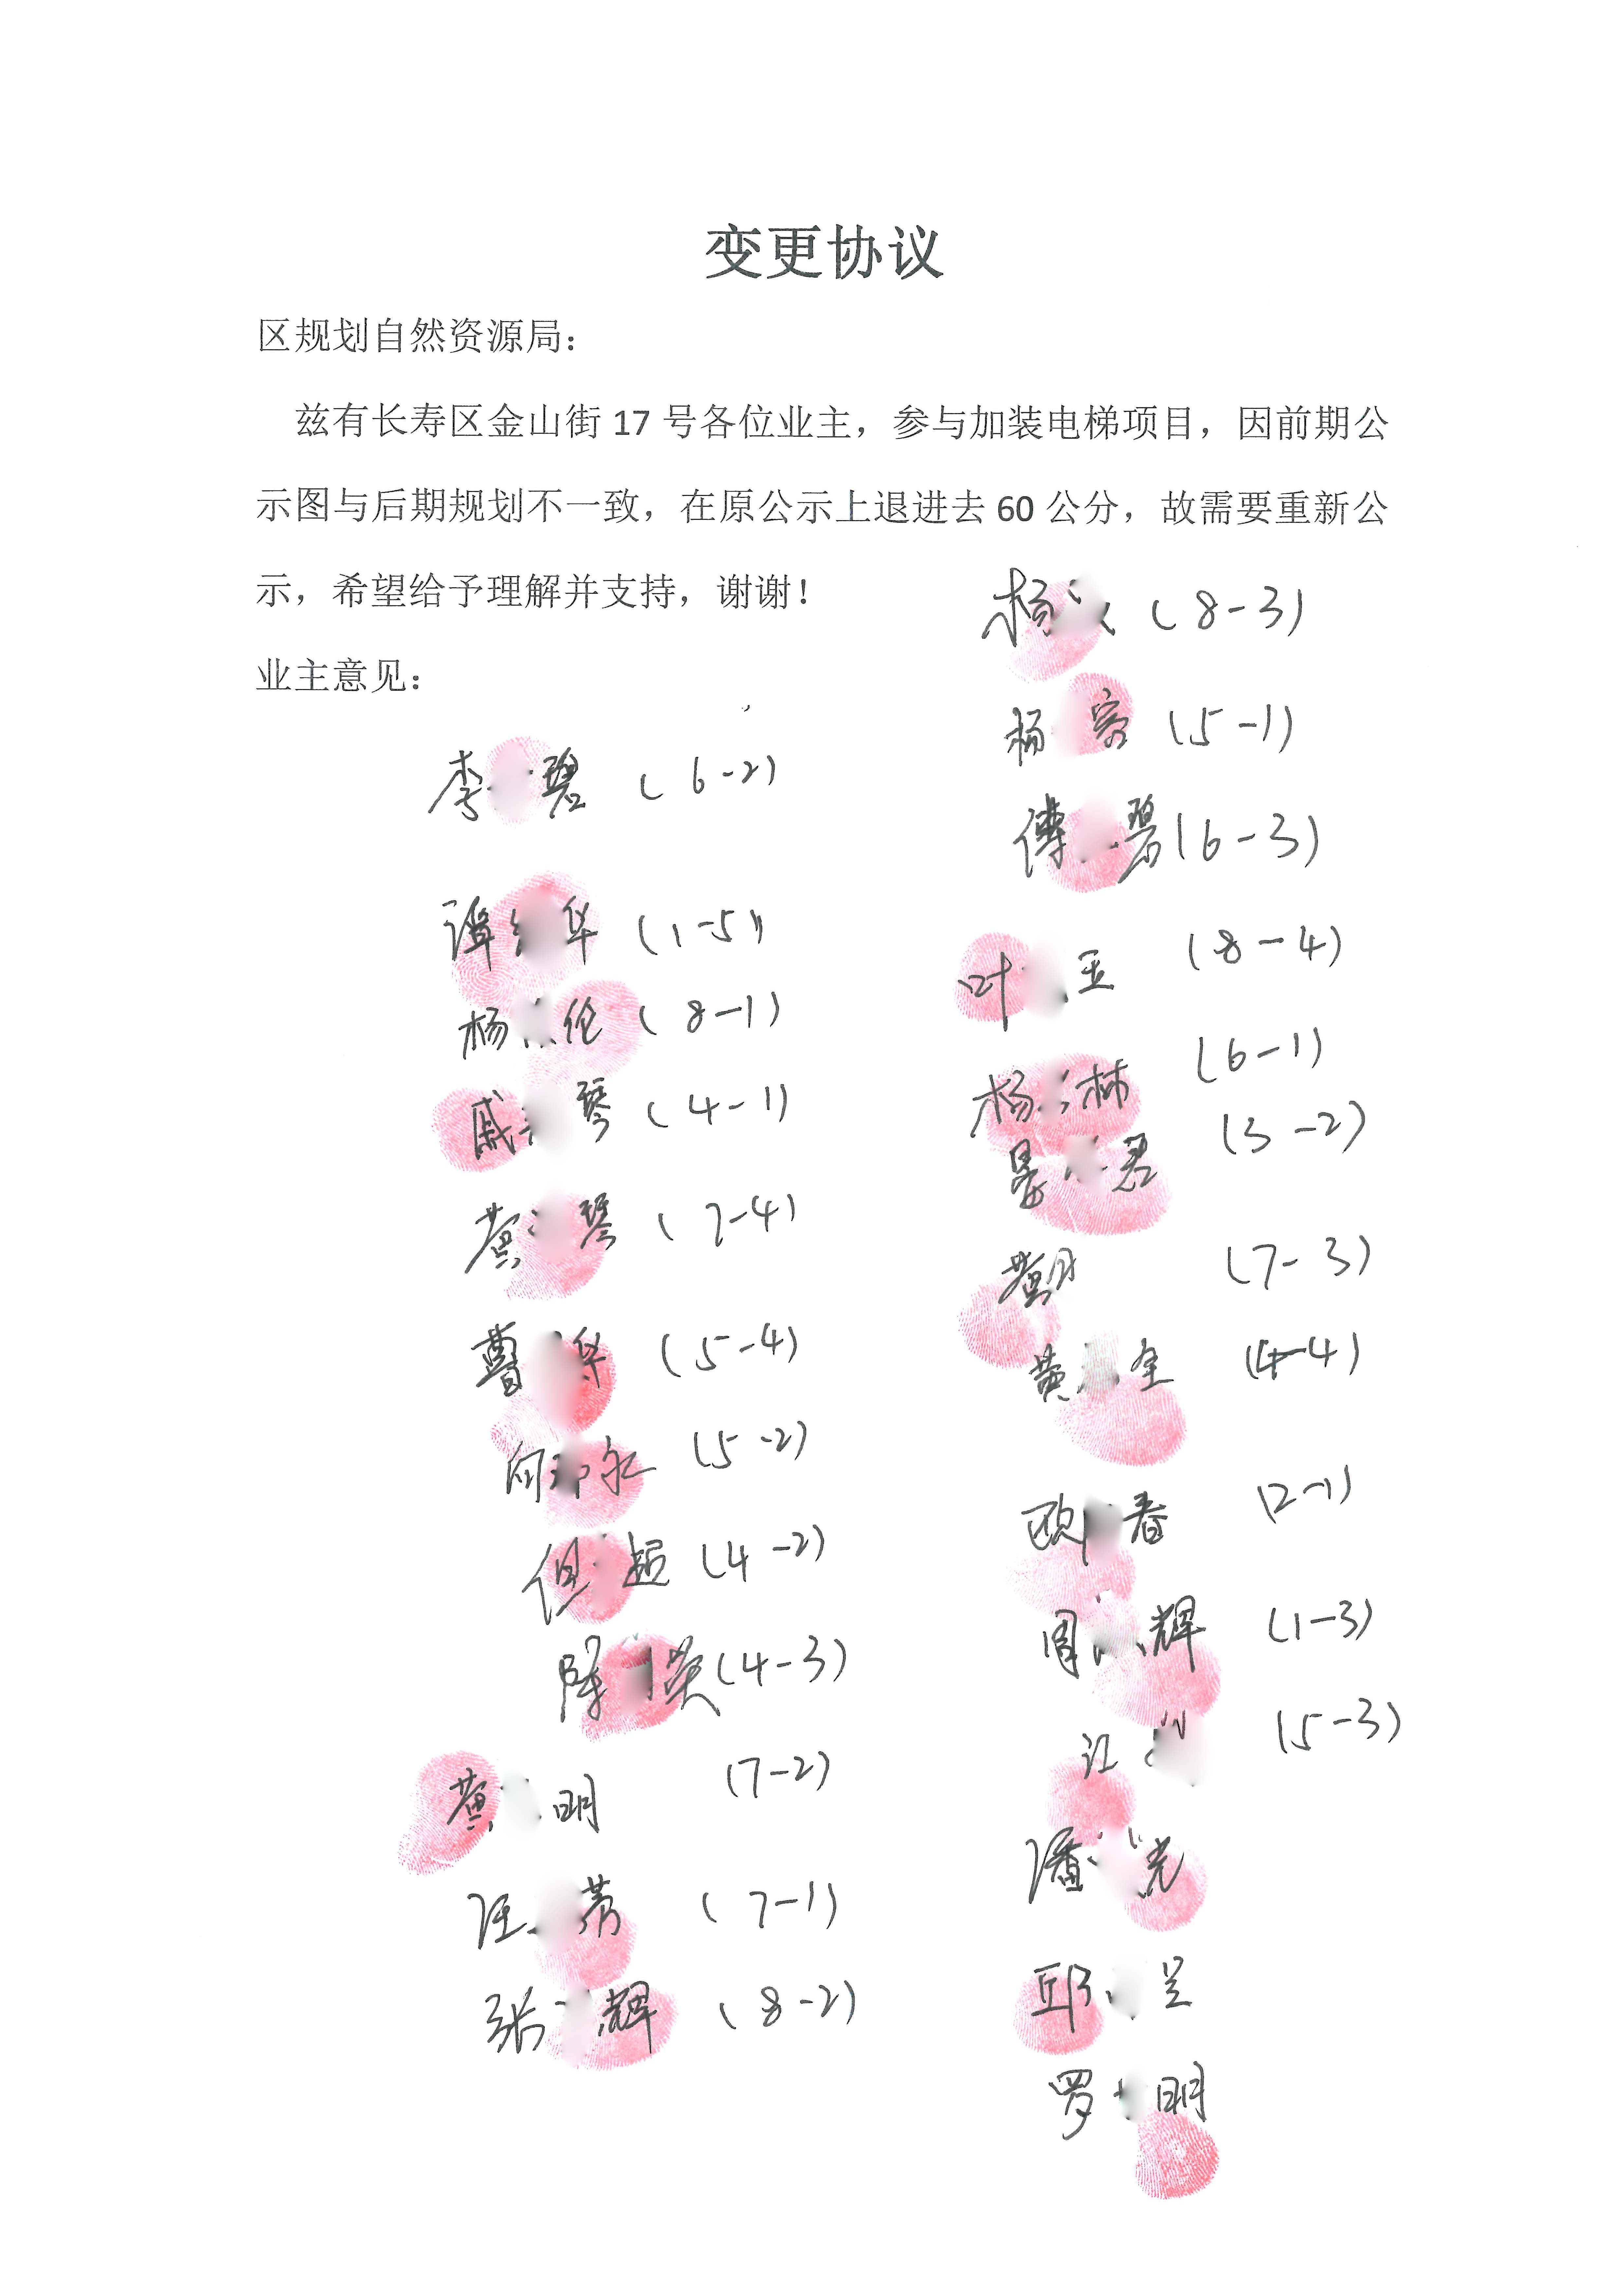 变更协议
区规划自然资源局：
兹有长寿区金山街 17 号各位业主，参与加装电梯项目，因前期公
示图与后期规划不一致，在原公示上退进去 60 公分，故需要重新公
示，希望给予理解并支持，谢谢！
业主意见：
李 碧 (6-2)
谭 华 (1-5)
杨 伦 (8-1)
戚 琴 (4-1)
黄 琴 (7-4)
曹 华 (5-4)
向 永 (5-2)
但 超 (4-2)
陈 英 (4-3)
黄 明 (7-2)
汪 芳 (7-1)
张 辉 (8-2)
杨 (8-3)
杨 容 (5-1)
傅 碧 (6-3)
叶 玉 (8-4)
杨 林 (6-1)
晏 君 (3-2)
黄 (7-3)
黄 全 (4-4)
欧 春 (2-1)
周 辉 (1-3)
江 (5-3)
潘 光
邱
罗 明